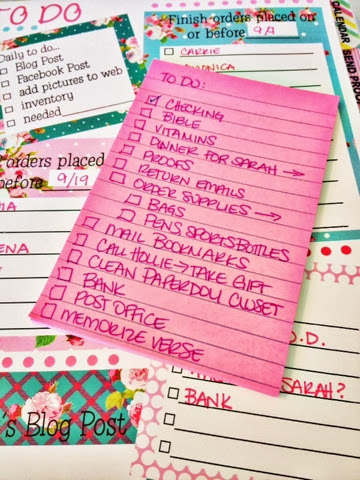 TO DO
Daily to do...
Blog Post
Facebook Post
add pictures to web
inventory
needed
Finish orders placed on
or before 9/1
CARRIE
CALENDAR
orders placed
before 9/19
ENA
TO DO:
CHECKING
BIBLE
VITAMINS
DINNER FOR SARAH →
PROOFS
RETURN EMAILS
ORDER SUPPLIES →
BAGS
PENS SPORTSBOTTLES
MAIL BOOKMARKS
CALL HOLLIE → TAKE GIFT
CLEAN PAPERDOLL CLOSET
BANK
POST OFFICE
MEMORIZE VERSE
.D.
SARAH?
BANK
's Blog Post